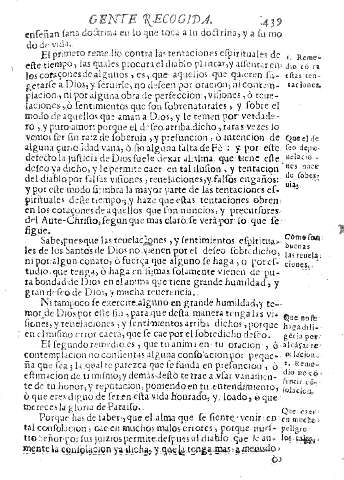 GENTE RECOGIDA. 439
enseñan sana doctrina en lo que toca a su doctrina, y a su mo
do de vida.
El primero remedio contra las tentaciones espirituales de
este tiempo, las quales procura el diablo plantar, y assentar en
los coraçones de algunos, es, que aquellos que quieren su-
getarse a Dios, y seruirle, no desseen por oracion, ni contem-
placion, ni por alguna obra de perfeccion, visiones, ò reue-
laciones, ò sentimientos que son sobrenaturales, y sobre el
modo de aquellos que aman a Dios, y le temen por verdade-
ro, y puro amor: porque el desseo arriba dicho, raras vezes lo
vemos ser sin raiz de soberuia, y presuncion, ò intencion de
alguna curiosidad vana, ò sin alguna falta de Fè: y por este
defecto la justicia de Dios suele dexar al alma que tiene este
desseo ya dicho, y le permite caer en tal ilusion, y tentacion
del diablo por falsas visiones, reuelaciones, y falsos engaños:
y por este modo siembra la mayor parte de las tentaciones es-
pirituales deste tiempo, y haze que estas tentaciones obren
en los coraçones de aquellos que son nuncios, y precursores
del Ante-Christo, segun que mas claro se verà por lo que se
sigue.
Sabe, pues que las reuelaciones, y sentimientos espiritua-
les de los Santos de Dios no vienen por el desseo sobredicho,
ni por algun conato, ò fuerça que alguno se haga, ni por es-
tudio que tenga, ò haga en si, mas solamente vienen de pu-
ra bondad de Dios en el anima que tiene grande humildad, y
gran desseo de Dios, y mucha reuerencia.
Ni tampoco se exercite alguno en grande humildad, y te-
mor de Dios por este fin, para que desta manera tenga las vi-
siones, y reuelaciones, y sentimientos arriba dichos, porque
en el mismo error caerà, que se cae por el sobredicho desseo.
El segundo remedio es, que tu anima en tu oracion, ò
contemplacion no consientas alguna consolacion por peque-
ña que sea; la qual te parezca que se funda en presuncion, ò
estimacion de ti mismo, y demàs desto te trae a vsar vanamen-
te de tu honor, y reputacion, poniendo en tu entendimiento,
ò que eres digno de ser en esta vida honrado, y loado, ò que
mereces la gloria de Paraiso.
Porque has de saber, que el alma que se siente venir en
tal consolacion, cae en muchos malos errores, porque nues-
tro señor por sus juizios permite despues al diablo que le au-
mente la consolacion ya dicha, y que la tenga mas a menudo
1. Reme-
dio cõtra
estas ten-
taciones.
Que el de
seo de
nace
de sober-
uia.
Como son
buenas
las reuela
ciones.
Que no se
haga
por
alcãçar re
uelacion.
2. Reme-
dio no cõ
sentir cõ-
solacion.
Que caer
en mucho
peligro
los tales.